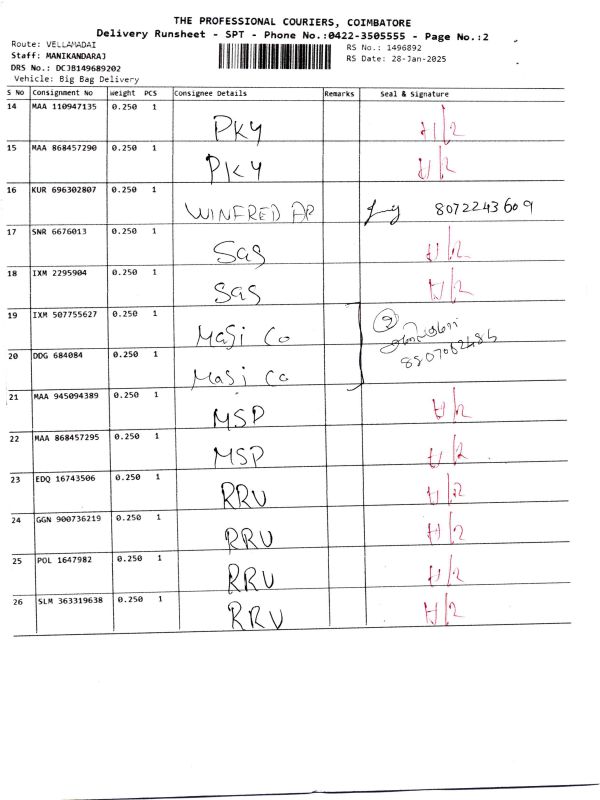 THE PROFESSIONAL COURIERS, COIMBATORE
Delivery Runsheet - SPT - Phone No.:0422-3505555 - Page No.:2
Route: VELLAMADAI
RS No.: 1496892
Staff: MANIKANDARAJ
RS Date: 28-Jan-2025
DRS No.: DCJB149689202
Vehicle: Big Bag Delivery
S No Consignment No Weight PCS Consignee Details Remarks Seal & Signature
14 MAA 110947135 0.250 1 PKY
15 MAA 868457290 0.250 1 PKY
16 KUR 696302807 0.250 1 WINFRED AP 8072243609
17 SNR 6676013 0.250 1 SaS
18 IXM 2295904 0.250 1 SaS
19 IXM 507755627 0.250 1 Masi Co 2
20 DDG 684084 0.250 1 Masi Co
21 MAA 945094389 0.250 1 MSP
22 MAA 868457295 0.250 1 MSP
23 EDQ 16743506 0.250 1 RRV
24 GGN 900736219 0.250 1 RRV
25 POL 1647982 0.250 1 RRV
26 SLM 363319638 0.250 1 RRV